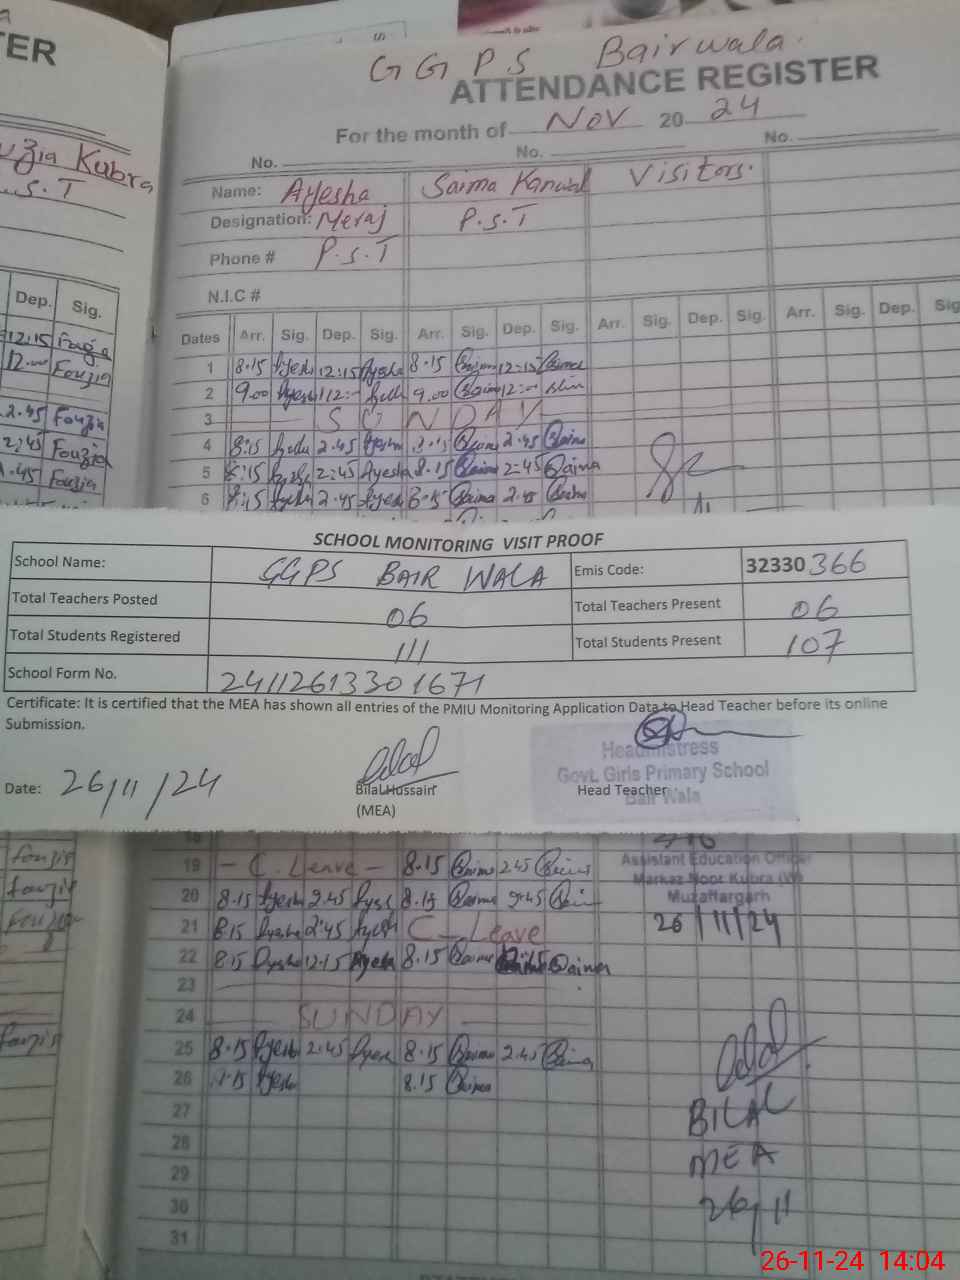 ER
uzia Kubra
S. T
Dep. Sig.
12:15 Fouzia
12:00 Fouzia
2.45 Fouzia
2:45 Fouzia
.45 Fouzia
GGPS Bairwala.
ATTENDANCE REGISTER
For the month of Nov 20 24
No. No. No.
Name: Ayesha Saima Kanwal Visitors.
Designation: Meraj P.S.T
Phone # P.S.T
N.I.C #
Dates Arr. Sig. Dep. Sig. Arr. Sig. Dep. Sig. Arr. Sig. Dep. Sig. Arr. Sig. Dep. Sig
1 8.15 Ayesh 12:15 Ayesha 8.15 Saima 12:15 Saima
2 9.00 Ayesh 12:- 9.00 Saima 12:-
3 SUNDAY
4 8:15 2.45 Ayesha Saima 2.45 Saima
5 8:15 2:45 Ayesha 8.15 Saima 2=45 Saima
6 8:15 Ayesh 2.45 Ayesh 8.15 Saima 2.45
SCHOOL MONITORING VISIT PROOF
School Name: GGPS BAIR WALA Emis Code: 32330366
Total Teachers Posted 06 Total Teachers Present 06
Total Students Registered 111 Total Students Present 107
School Form No. 24112613301671
Certificate: It is certified that the MEA has shown all entries of the PMIU Monitoring Application Data to Head Teacher before its online
Submission.
Date: 26/11/24
Bilal Hussain
(MEA)
Headmistress
Govt. Girls Primary School
Bair Wala
Head Teacher
18
19 - C. Leave - 8.15 Saima 2.45 Saima
Assistant Education Officer
Markaz Noor Kubra (W)
Muzaffargarh
26/11/24
20 8.15 Ayesh 2.45 Ayes 8.15 Saima 2.45
21 8:15 Ayesha 2:45 Ayesh C-Leave
22 8:15 Ayesha 12.15 Ayesha 8.15 Saima Saima
23
24 SUNDAY
25 8.15 Ayesh 2.45 Ayesh 8.15 Saima 2.45 Saima
26 .15 Ayesh 8.15 Saima
27
28
29
30
31
BILAL
MEA
26/11
26-11-24 14:04